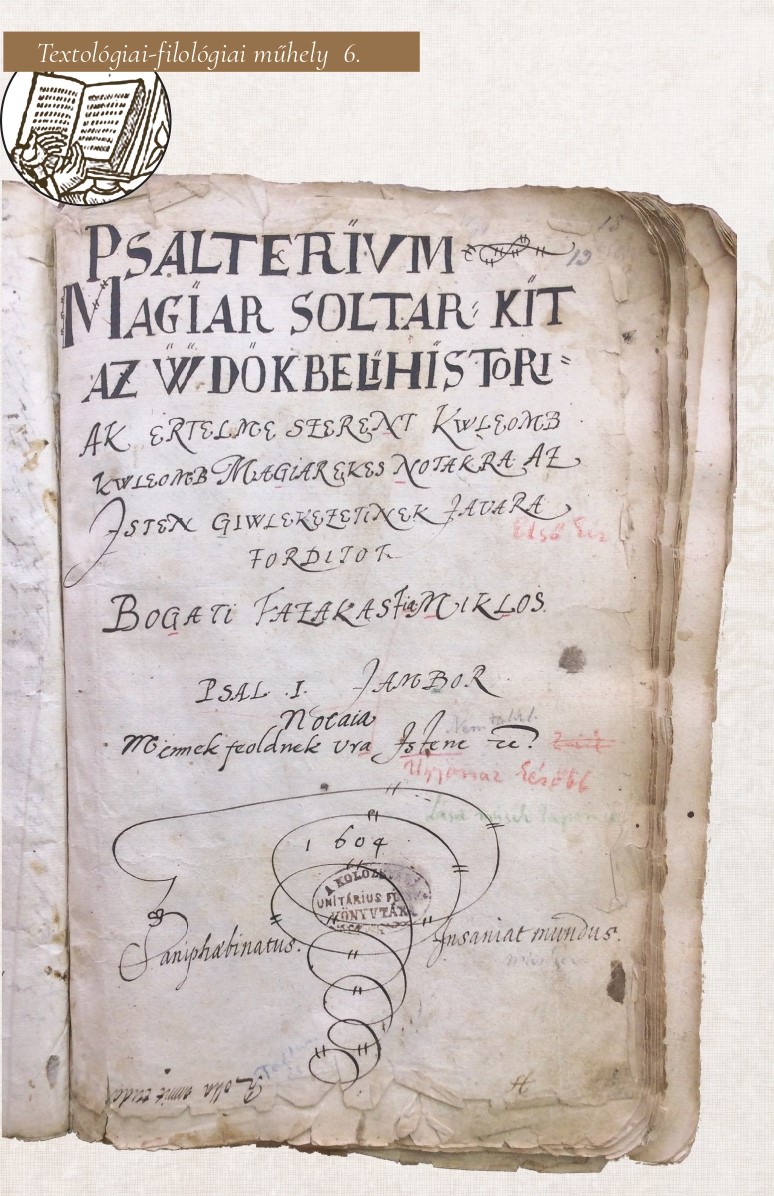 Textológiai-filológiai műhely 6.
PSALTERIVM
MAGIAR SOLTAR: KIT
AZ W̋DŐKBELI HISTORI=
AK ERTELME SZERENT KWLEOMB
KWLEOMB MAGIAR EKES NOTAKRA AZ
ISTEN GIWLEKEZETINEK JAVARA
Első
FORDITOT
BOGATI FAZAKAS Fia MIKLOS.
PSAL .I. JAMBOR
Notaia
Mennek feoldnek vra Istene
Ugyanaz később
Lásd másik
1604
A KOLOZSVÁRI
UNITÁRIUS
KÖNYVTÁRA
Insaniat mundus.